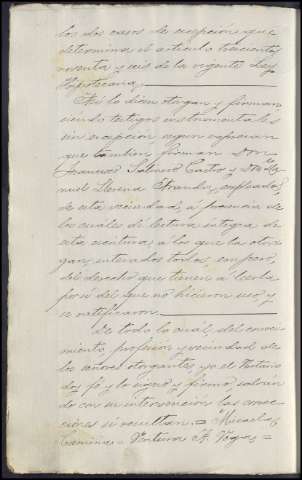 los dos casos de escepción que
determina el articulo trescientos
noventa y seis de la vigente Ley
Hipotecaria.
Asi lo dicen otorgan y firman
siendo testigos instrumentales
sin escepcion segun espresan
que tambien firman Don
Francisco Salorio Castro y Don Ma
nuel Llerena empleados
de esta vecindad, á presencia de
los cuales dí lectura integra de
esta escritura, á los que la otor
gan, enterados todos, empero,
del derecho que tienen á leerla
por sí del que no hicieron uso y
se ratificaron.
De todo lo cual, del conoci
miento profesion y vecindad de
los señores otorgantes, yo el Notario
doy fé y lo signo y firmo salvan
do con su intervención las correc
ciones si resultan = Micaela
Ventura =